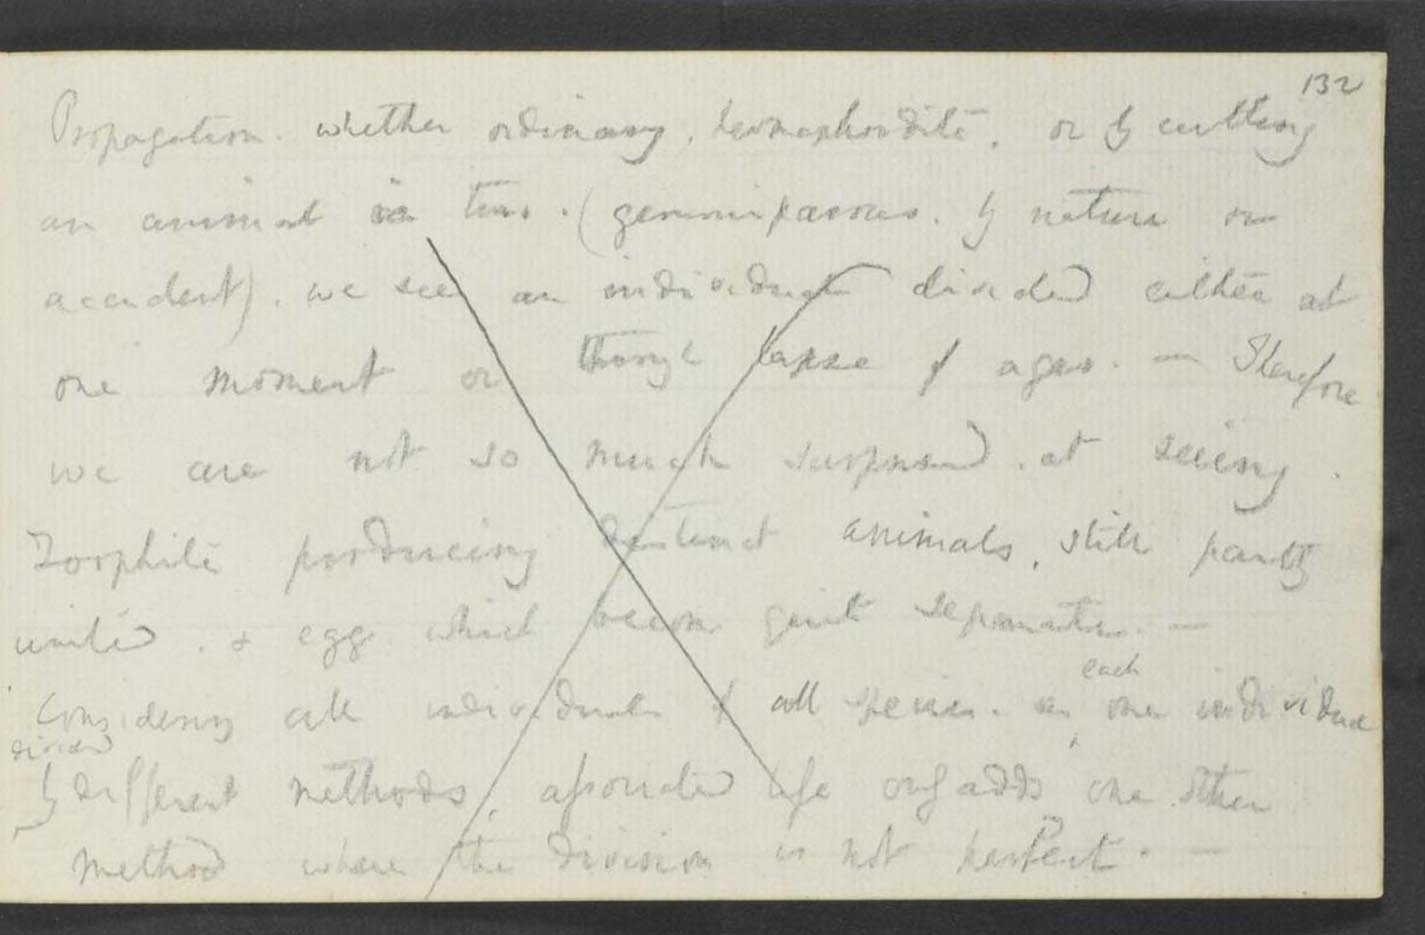 132
Propagation. whether ordinary, hermaphrodite, or by cutting
an animal in two. (gemmiparous. by nature or
accident). we see an individual divided either at
one moment or through lapse of ages. — Therefore
we are not so much surprised at seeing
Zoophite producing distinct animals, still partly
united. & egg which become quite separate. —
Considering all individuals of all species. as each one individual
divided
by different methods, associated life only adds one other
method where the division is not perfect. —